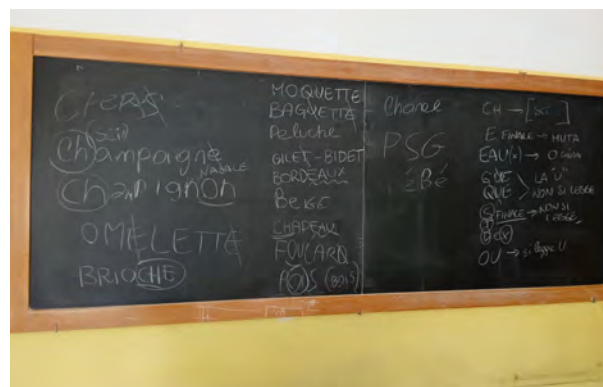 (sci)
Champagne
NASALE
Champignon
OMELETTE
BRIOCHE
MOQUETTE
BAGUETTE
Peluche
GILET-BIDET
BORDEAUX
BEIGE
CHAPEAU
FOULARD
Chanel
PSG
BéBé
CH → [sci]
E FINALE → MUTA
EAU(x) → O
GUE
QUE
LA "U"
NON SI LEGGE
S FINALE → NON SI
LEGGE
OU → si legge U